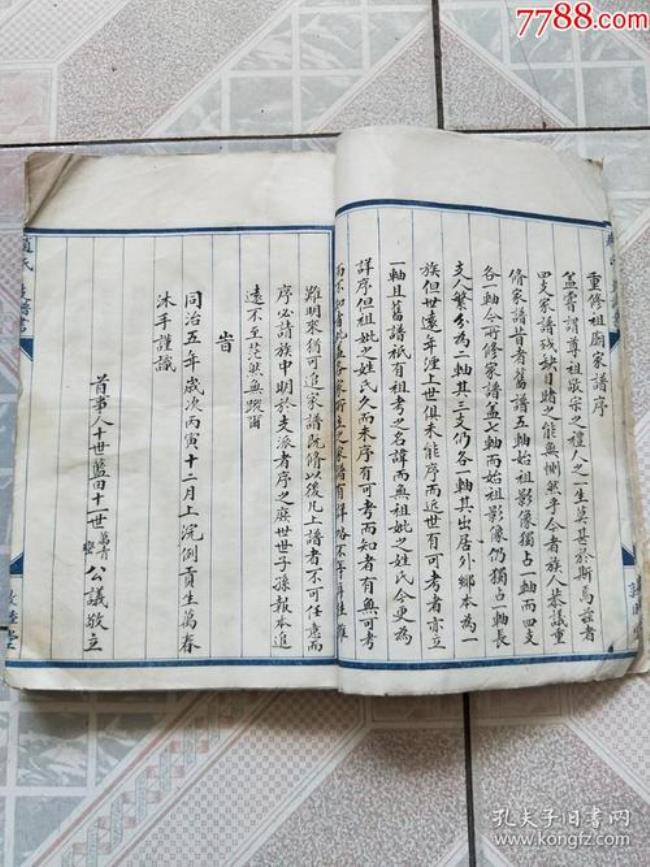 7788.com
重修祖廟家譜序
盖嘗謂尊祖敬宗之禮人之一生莫甚於斯焉茲者
四支家譜殘缺目睹之能無惻然乎今者族人恭議重
脩家譜昔者舊譜五軸始祖影像獨占一軸而四支
各一軸今所修家譜盖七軸而始祖影像仍獨占一軸長
支人繁分為二軸其三支仍各一軸其出居外鄉本為一
族但世遠年湮上世俱未能序而近世有可考者亦立
一軸且舊譜祇有祖考之名諱而無祖妣之姓氏今更為
詳序但祖妣之姓氏久而未序有可考而知者有無可考
而不知者
難明來猶可追家譜既脩以後凡上譜者不可任意而
序必請族中明於支派者序之庶世世子孫報本追
遠不至茫然無蹤爾
旹
同治五年歲次丙寅十二月上浣例貢生萬春
沐手謹識
首事人十世藍田十一世萬 公議敬立
氏 譜書
睦堂
孔夫子旧书网
kongfz.com